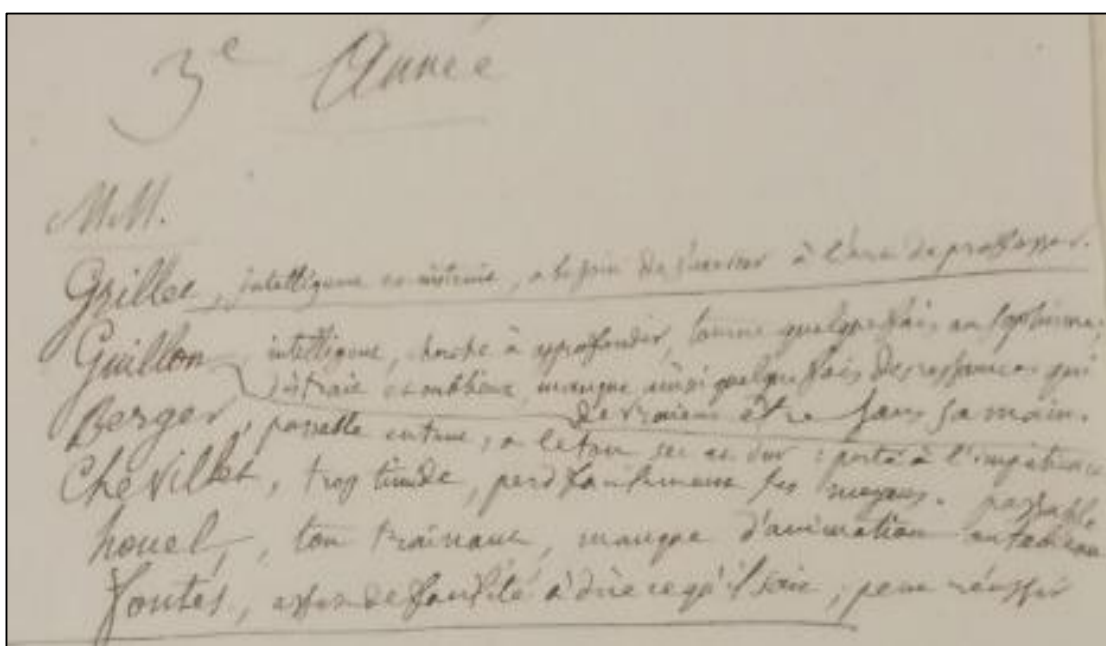 3e Année
MM.
Grillet, intelligent et instruit, a besoin de s'exercer à l'art de professer.
Guillon intelligent, cherche à approfondir, tourne quelquefois au sophisme;
distrait et oublieux, manque ainsi quelquefois des ressources qui
devraient être sous sa main.
Berger, passable en tout, a le ton sec et dur : porté à l'impatience
Chevillet, trop timide, perd facilement ses moyens. passable
houel, ton trainant, manque d'animation au tableau
fontes, assez de facilité à dire ce qu'il sait, peut réussir